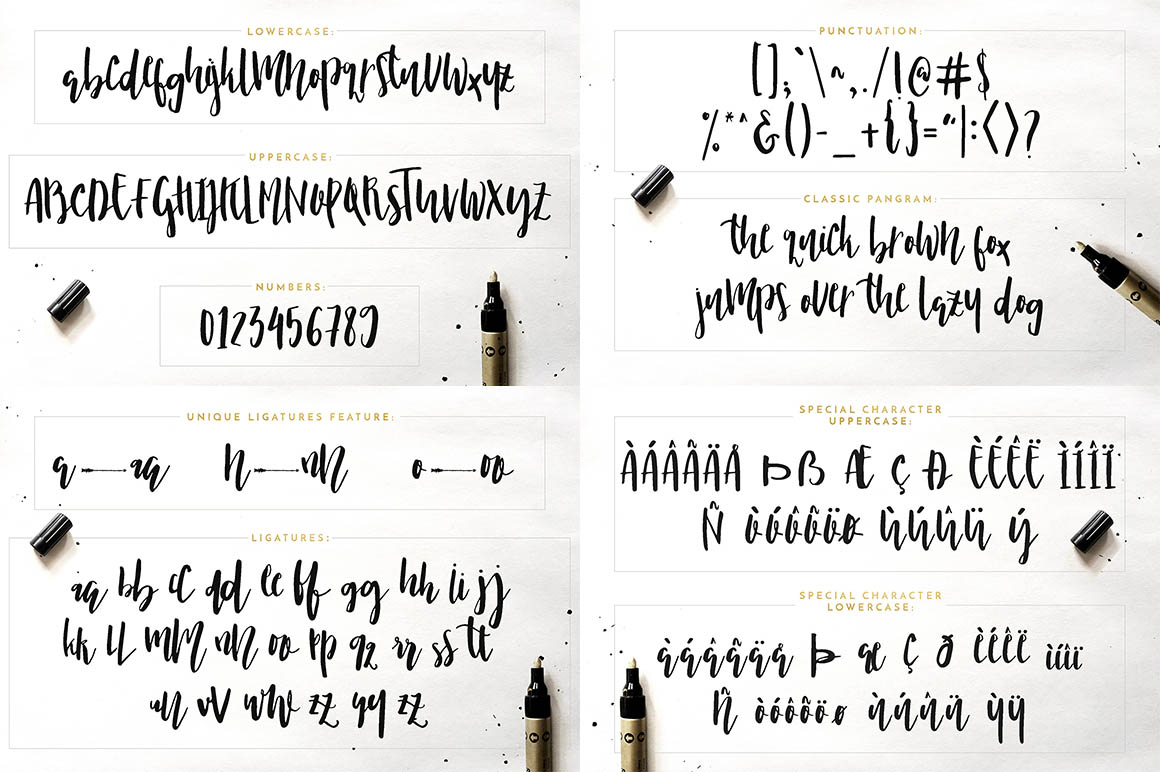 LOWERCASE:
abcdefghijklmnopqrstuvwxyz
UPPERCASE:
ABCDEFGHIJKLMNOPQRSTUVWXYZ
NUMBERS:
0123456789
PUNCTUATION:
[];`\~,./!@#$
%*^&()-_+{}="|:<>?
CLASSIC PANGRAM:
the quick brown fox
jumps over the lazy dog
UNIQUE LIGATURES FEATURE:
a aa n nn o oo
LIGATURES:
aa bb cc dd ee ff gg hh ii jj
kk ll mm nn oo pp qq rr ss tt
uu vv ww zz yy zz
SPECIAL CHARACTER
UPPERCASE:
ÀÁÂÃÄÅ Þß Æ Ç Ð ÈÉÊË ÌÍÎÏ
Ñ òóôõöø ÙÚÛÜ Ý
SPECIAL CHARACTER
LOWERCASE:
àáâãäå Þ æ Ç ð ÈÉÊË ìíîï
Ñ òóôõöø ùúûü ýÿ